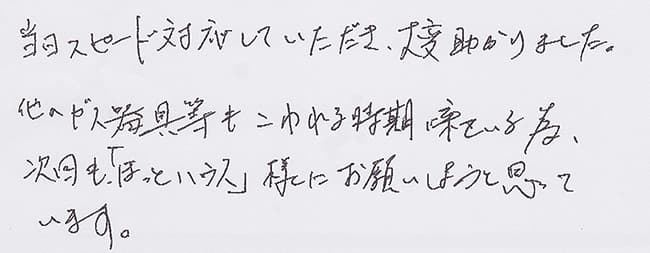 当日スピード対応していただき、大変助かりました。
他のガス器具等もこわれる時期 来ている為、
次回も、「ほっとハウス」様にお願いしようと思って
います。